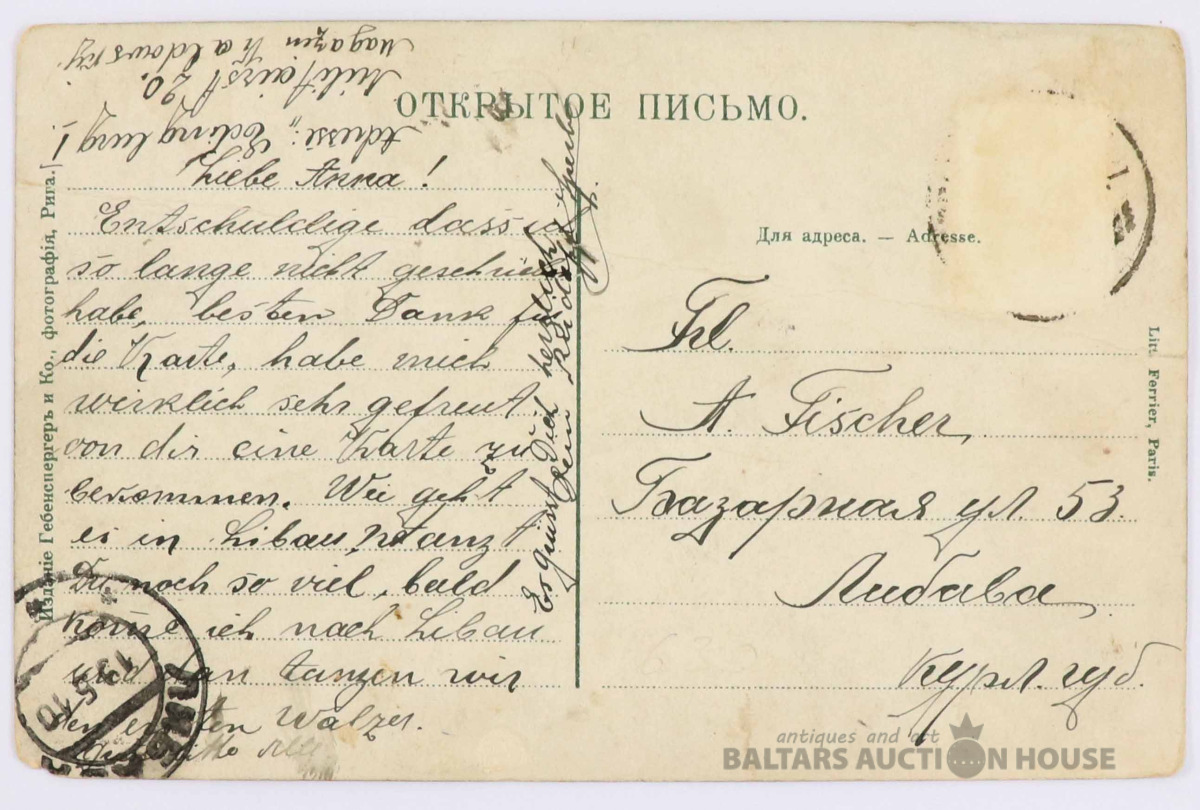 ОТКРЫТОЕ ПИСЬМО.
Adresse: Edinburg I.
Militairst 20.
Magazen Kaldowsky
Liebe Anna!
Entschuldige dass ich
so lange nicht geschrieb
habe, besten Dank für
die Karte, habe mich
wirklich sehr gefreut
von dir eine Karte zu
bekommen. Wie geht
es in Libau, tanzt
Du noch so viel, bald
kome ich nach Libau
und dan tanzen wir
den ersten Walzer.
Es grüsst Dich herzlich
Dein
Для адреса. — Adresse.
Frl.
A. Fischer
Базарная ул. 53.
Либава
Курл. губ.
Изданіе Гебенспергеръ и Ко., фотографія, Рига.
Litt. Ferrier, Paris.
13 5 10
antiques and art
BALTARS AUCTION HOUSE